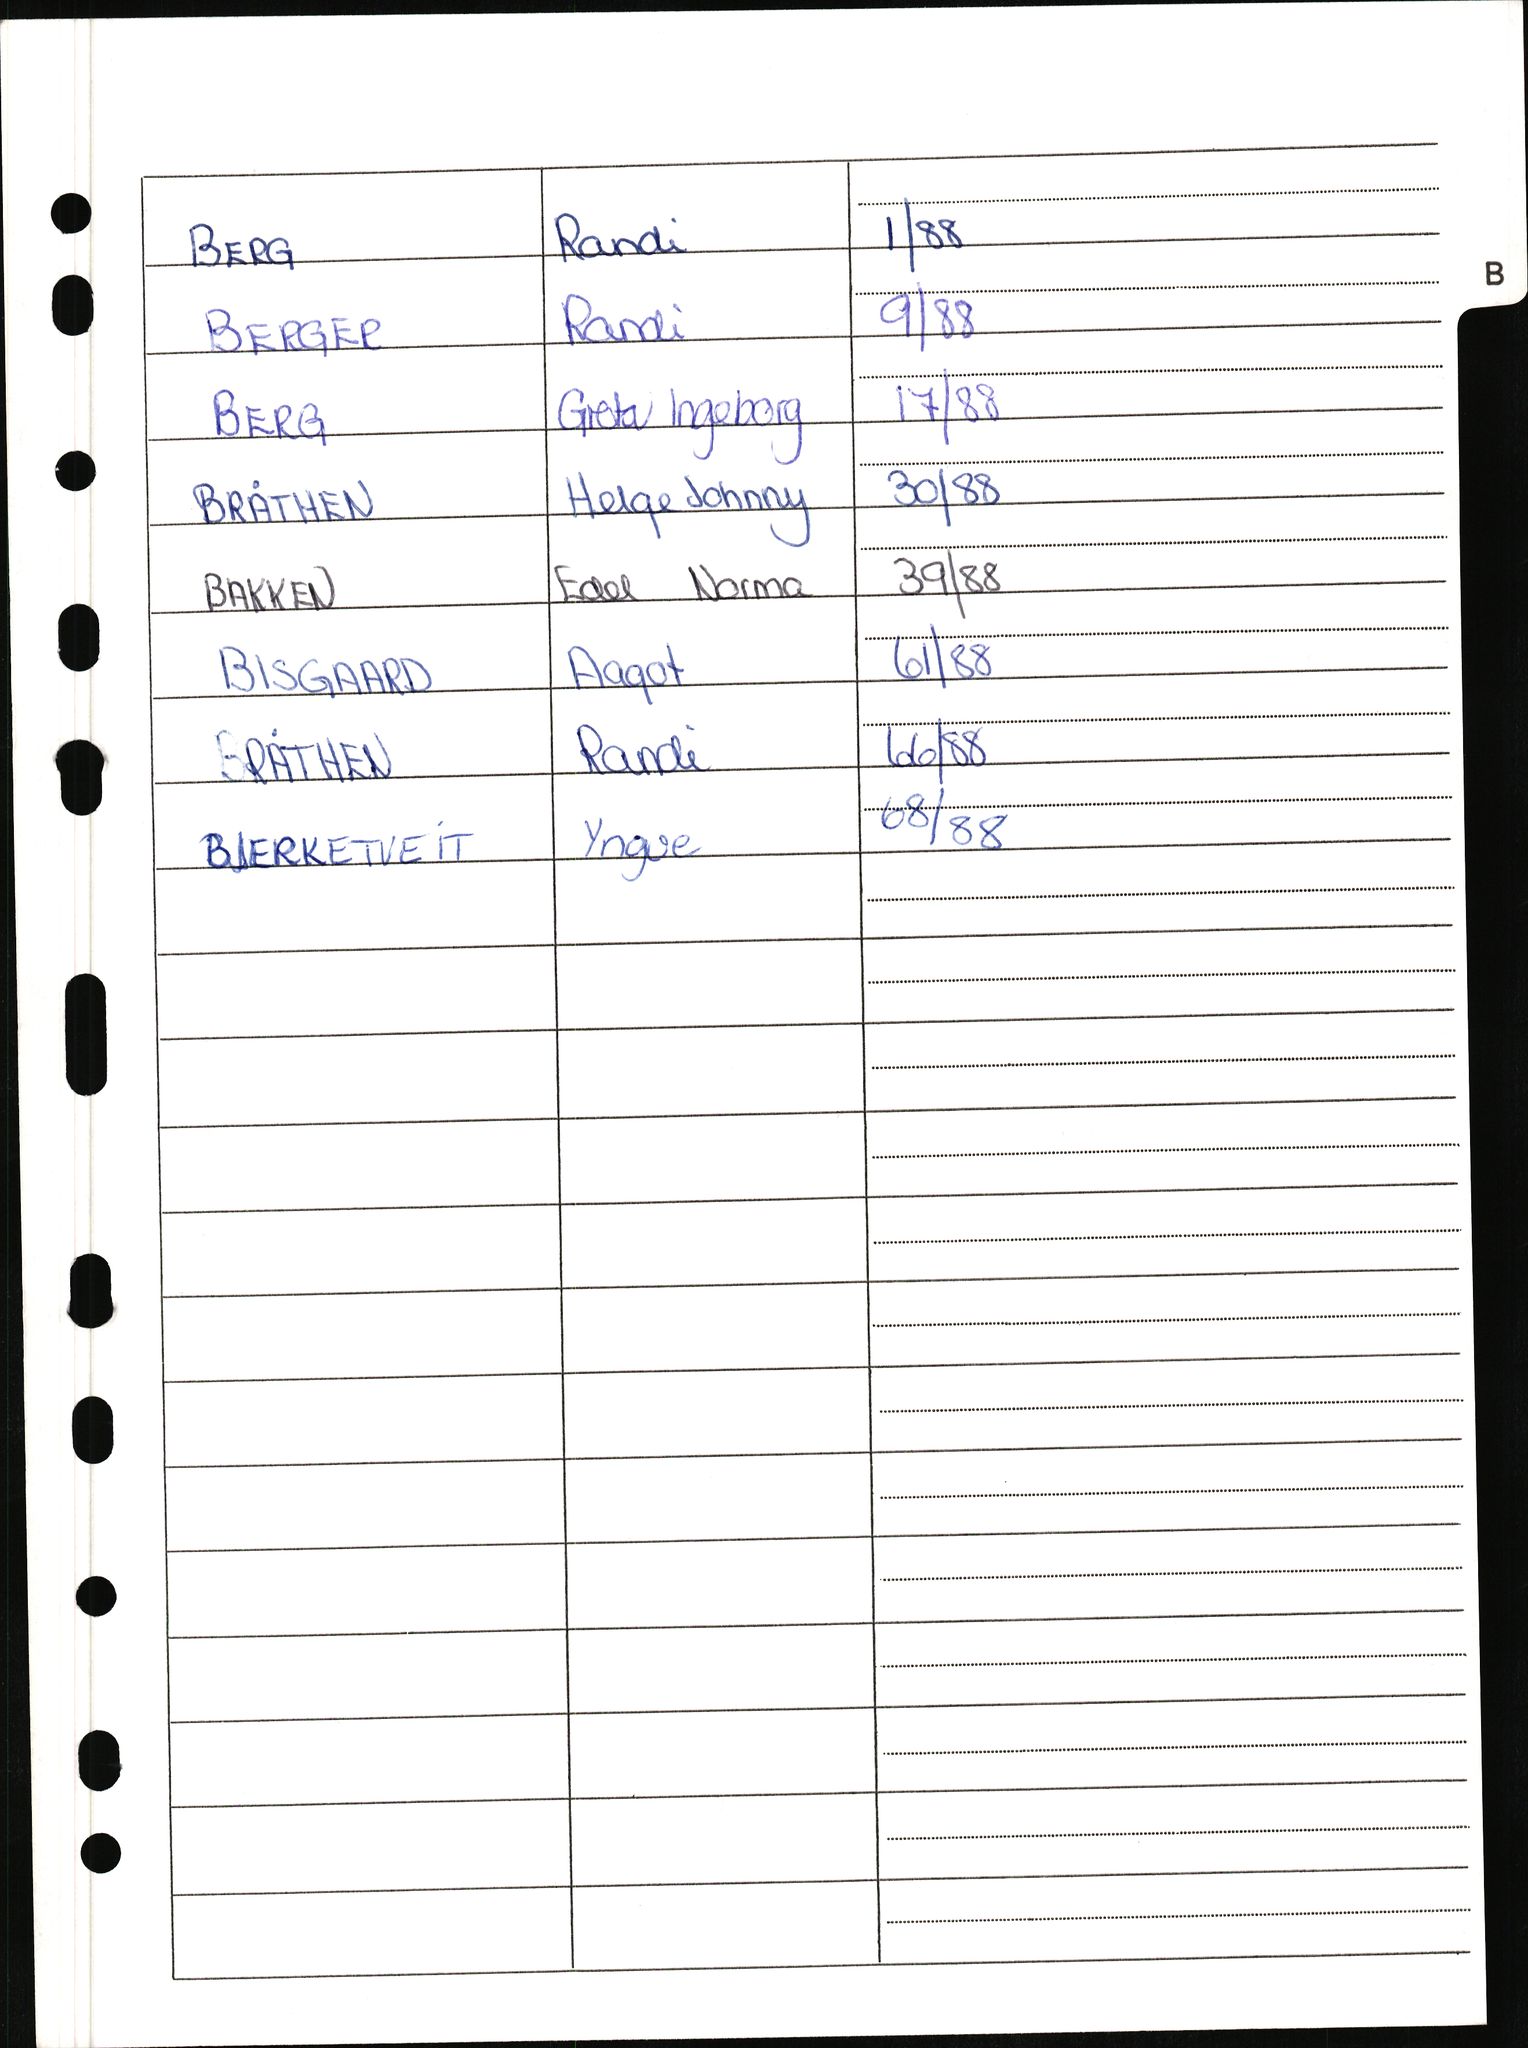 BERG Randi 1/88
B
BERGER Randi 9/88
BERG Greta Ingeborg 17/88
BRÅTHEN Helge Johnny 30/88
BAKKEN Edel Norma 39/88
BISGAARD Aagot 61/88
BRÅTHEN Randi 66/88
BJERKETVEIT Yngve 68/88